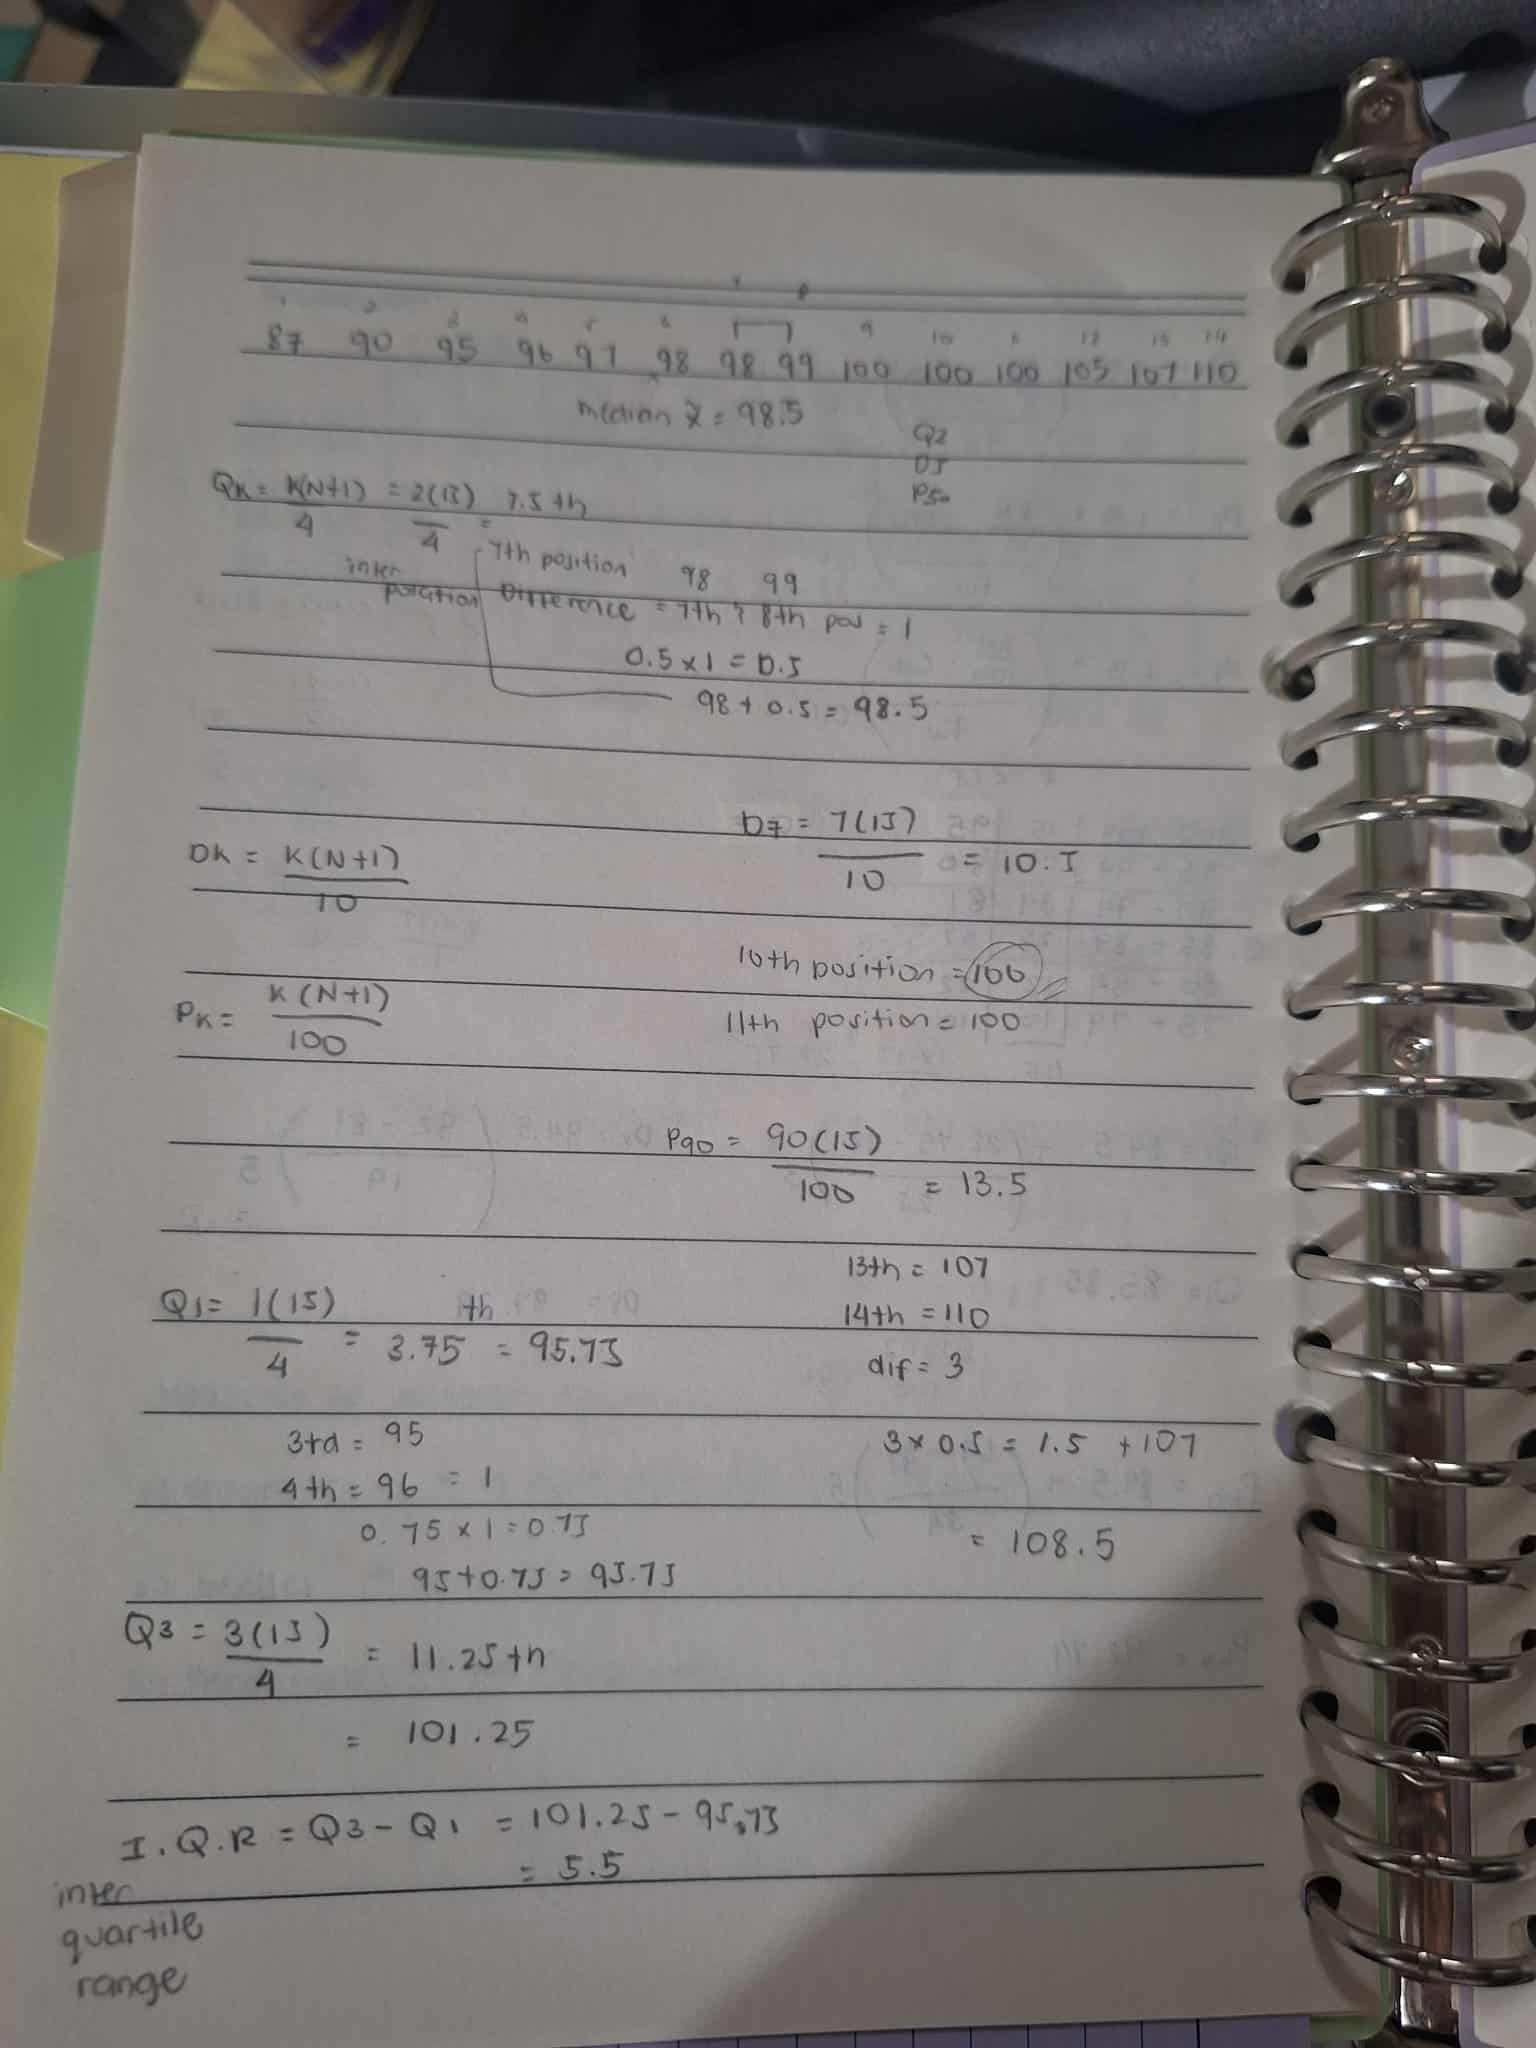 7 8
1 2 3 4 5 6 9 10 11 12 13 14
87 90 95 96 97 98 98 99 100 100 100 105 107 110
median x̃ = 98.5
Q2
D5
P50
QK = K(N+1) / 4 = 2(15) / 4 = 7.5 th
7th position 98 99
inter polation Difference = 7th & 8th pos = 1
0.5 x 1 = 0.5
98 + 0.5 = 98.5
DK = K(N+1) / 10
D7 = 7(15) / 10 = 10.5
10th position = 100
11th position = 100
PK = K(N+1) / 100
P90 = 90(15) / 100 = 13.5
13th = 107
14th = 110
dif = 3
3 x 0.5 = 1.5 + 107
= 108.5
Q1 = 1(15) / 4 = 3.75 th = 95.75
3rd = 95
4th = 96 = 1
0.75 x 1 = 0.75
95 + 0.75 = 95.75
Q3 = 3(15) / 4 = 11.25 th
= 101.25
I.Q.R = Q3 - Q1 = 101.25 - 95.75
= 5.5
inter
quartile
range